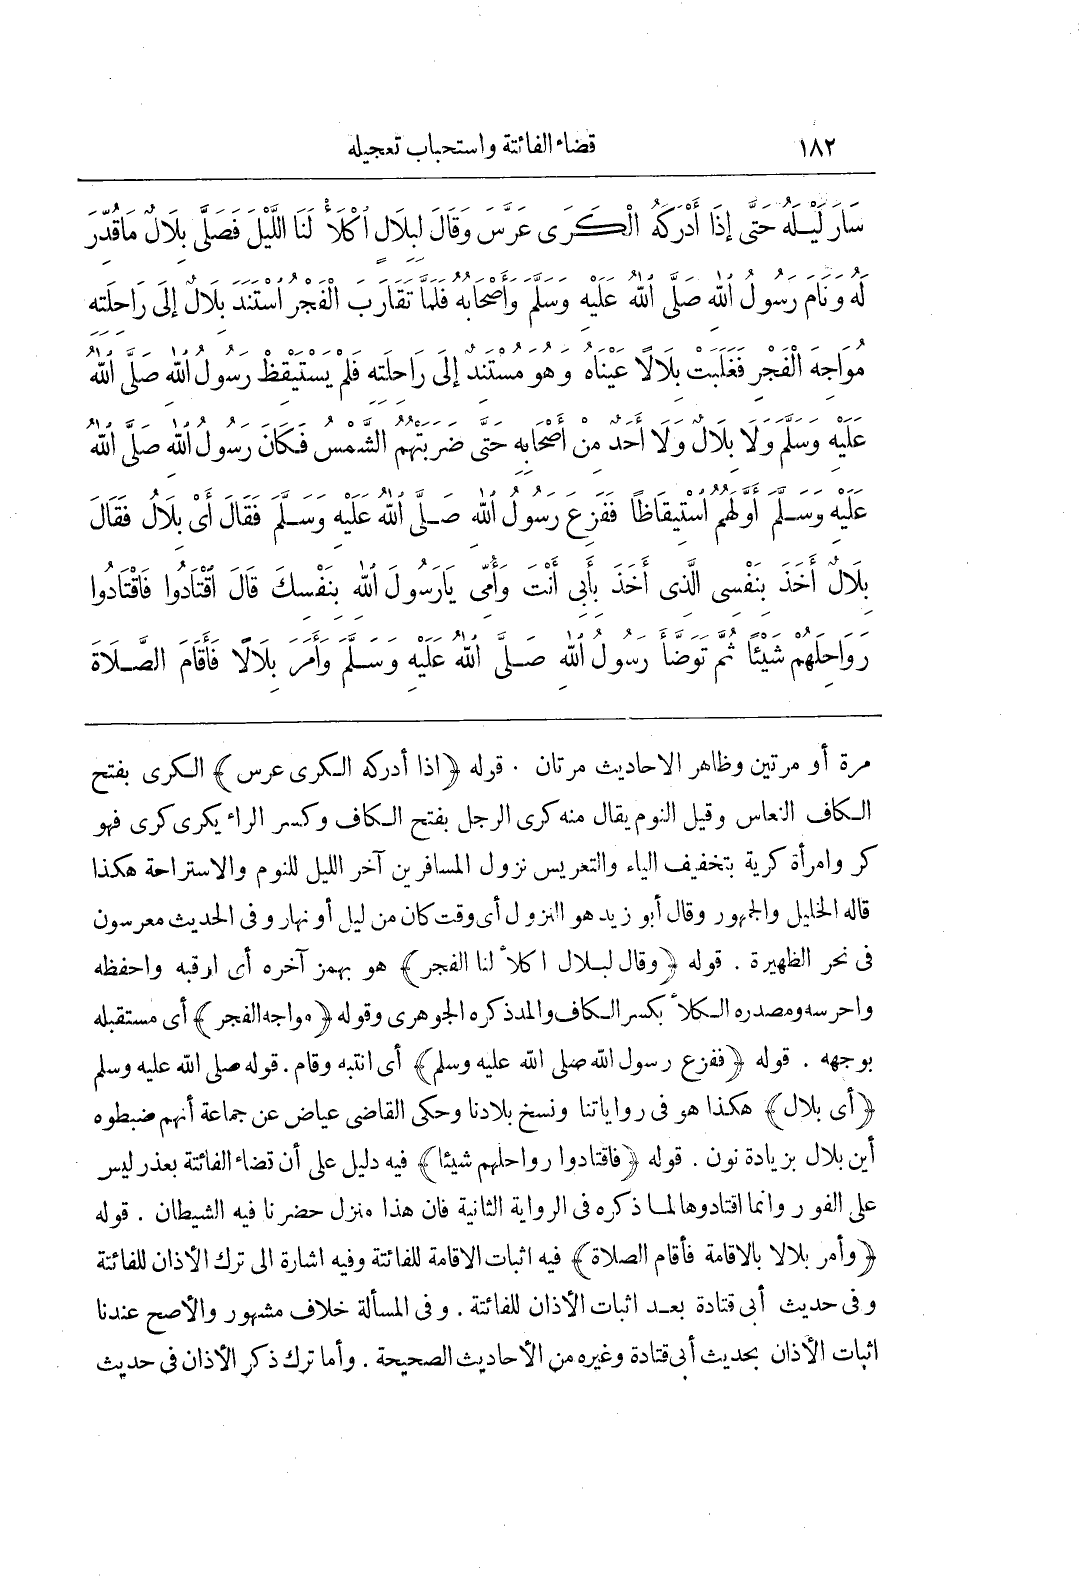 ١٨٢ قضاء الفائتة واستحباب تعجيله
سَارَ لَيْلَهُ حَتَّى إِذَا أَدْرَكَهُ الْكَرَى عَرَّسَ وَقَالَ لِبِلَالٍ اكْلَأْ لَنَا اللَّيْلَ فَصَلَّى بِلَالٌ مَا قُدِّرَ
لَهُ وَنَامَ رَسُولُ اللهِ صَلَّى اللهُ عَلَيْهِ وَسَلَّمَ وَأَصْحَابُهُ فَلَمَّا تَقَارَبَ الْفَجْرُ اسْتَنَدَ بِلَالٌ إِلَى رَاحِلَتِهِ
مُوَاجِهَ الْفَجْرِ فَغَلَبَتْ بِلَالًا عَيْنَاهُ وَهُوَ مُسْتَنِدٌ إِلَى رَاحِلَتِهِ فَلَمْ يَسْتَيْقِظْ رَسُولُ اللهِ صَلَّى اللهُ
عَلَيْهِ وَسَلَّمَ وَلَا بِلَالٌ وَلَا أَحَدٌ مِنْ أَصْحَابِهِ حَتَّى ضَرَبَتْهُمُ الشَّمْسُ فَكَانَ رَسُولُ اللهِ صَلَّى اللهُ
عَلَيْهِ وَسَلَّمَ أَوَّلَهُمُ اسْتِيقَاظًا فَفَزِعَ رَسُولُ اللهِ صَلَّى اللهُ عَلَيْهِ وَسَلَّمَ فَقَالَ أَىْ بِلَالُ فَقَالَ
بِلَالٌ أَخَذَ بِنَفْسِى الَّذِى أَخَذَ بِأَبِى أَنْتَ وَأُمِّى يَارَسُولَ اللهِ بِنَفْسِكَ قَالَ اقْتَادُوا فَاقْتَادُوا
رَوَاحِلَهُمْ شَيْئًا ثُمَّ تَوَضَّأَ رَسُولُ اللهِ صَلَّى اللهُ عَلَيْهِ وَسَلَّمَ وَأَمَرَ بِلَالًا فَأَقَامَ الصَّلَاةَ
مرة أو مرتين وظاهر الاحاديث مرتان . قوله ﴿اذا أدركه الكرى عرس﴾ الكرى بفتح
الكاف النعاس وقيل النوم يقال منه كرى الرجل بفتح الكاف وكسر الراء يكرى كرى فهو
كر وامرأة كرية بتخفيف الياء والتعريس نزول المسافرين آخر الليل للنوم والاستراحة هكذا
قاله الخليل والجمهور وقال أبو زيد هو النزول أى وقت كان من ليل أو نهار وفى الحديث معرسون
فى نحر الظهيرة . قوله ﴿وقال لبلال اكلأ لنا الفجر﴾ هو بهمز آخره أى ارقبه واحفظه
واحرسه ومصدره الكلأ بكسر الكاف والمد ذكره الجوهرى وقوله ﴿مواجه الفجر﴾ أى مستقبله
بوجهه . قوله ﴿ففزع رسول الله صلى الله عليه وسلم﴾ أى انتبه وقام . قوله صلى الله عليه وسلم
﴿أى بلال﴾ هكذا هو فى رواياتنا ونسخ بلادنا وحكى القاضى عياض عن جماعة أنهم ضبطوه
أين بلال بزيادة نون . قوله ﴿فاقتادوا رواحلهم شيئا﴾ فيه دليل على أن قضاء الفائتة بعذر ليس
على الفور وانما اقتادوها لما ذكره فى الرواية الثانية فان هذا منزل حضرنا فيه الشيطان . قوله
﴿وأمر بلالا بالاقامة فأقام الصلاة﴾ فيه اثبات الاقامة للفائتة وفيه اشارة الى ترك الأذان للفائتة
وفى حديث أبى قتادة بعد اثبات الأذان للفائتة . وفى المسألة خلاف مشهور والأصح عندنا
اثبات الأذان بحديث أبى قتادة وغيره من الأحاديث الصحيحة . وأما ترك ذكر الأذان فى حديث